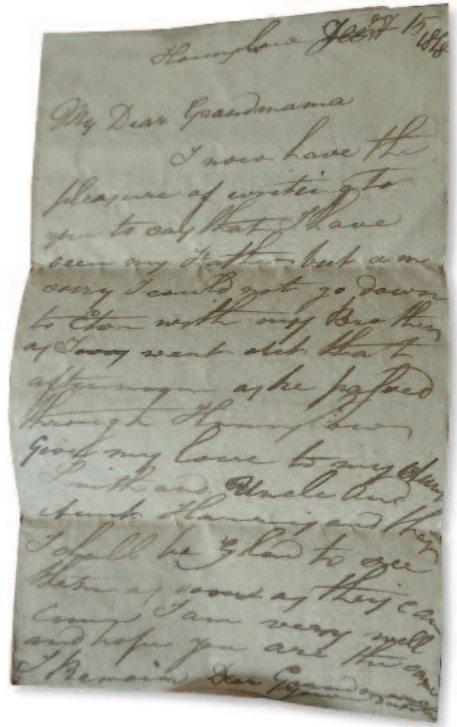 Hounslow Oct 15
My Dear Grandmama
I now have the
pleasure of writing to
you to say that I have
seen my Father but am
sorry I could not go down
to Eton with my Brother
as I went out that
afternoon as he passed
through Hounslow
Give my love to my
Smith and Uncle and
Aunt and they
I shall be glad to see
them as soon as they can
I am very well
and hope you are the same
I Remain Dear Grandmama